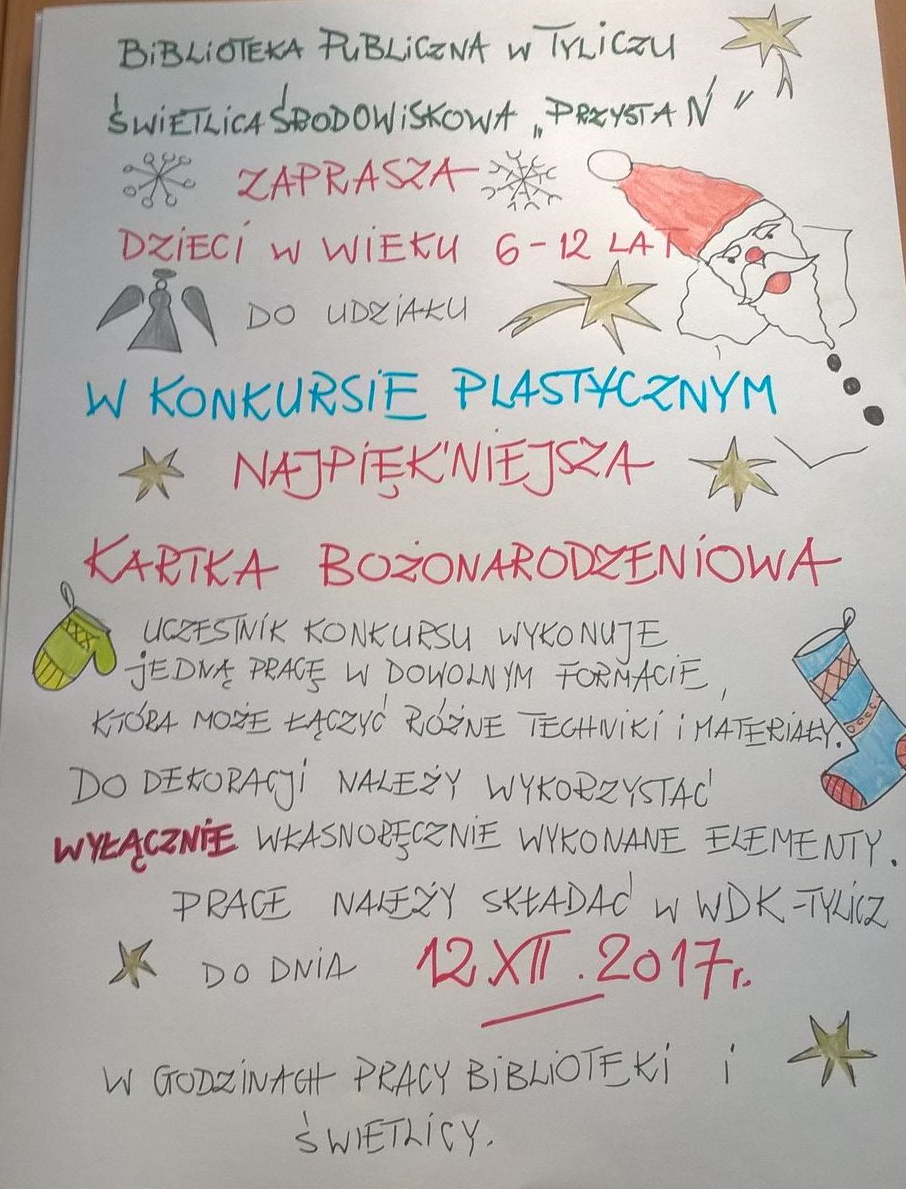 BIBLIOTEKA PUBLICZNA W TYLICZU
ŚWIETLICA ŚRODOWISKOWA „PRZYSTAŃ”
ZAPRASZA
DZIECI W WIEKU 6-12 LAT
DO UDZIAŁU
W KONKURSIE PLASTYCZNYM
NAJPIĘKNIEJSZA
KARTKA BOŻONARODZENIOWA
UCZESTNIK KONKURSU WYKONUJE
JEDNĄ PRACĘ W DOWOLNYM FORMACIE,
KTÓRA MOŻE ŁĄCZYĆ RÓŻNE TECHNIKI I MATERIAŁY.
DO DEKORACJI NALEŻY WYKORZYSTAĆ
WYŁĄCZNIE WŁASNORĘCZNIE WYKONANE ELEMENTY.
PRACE NALEŻY SKŁADAĆ W WDK-TYLICZ
DO DNIA 12 XII. 2017r.
W GODZINACH PRACY BIBLIOTEKI I
ŚWIETLICY.